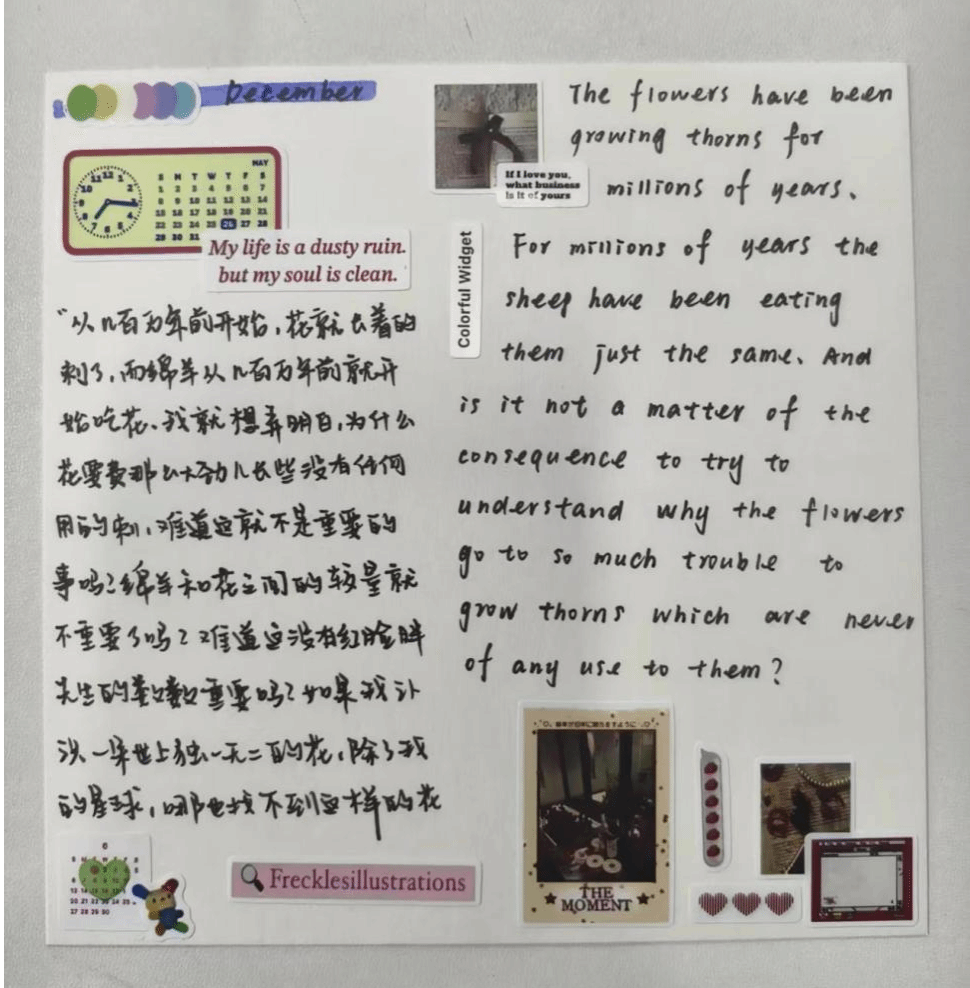 December
MAY
S M T W T F S
1 2 3 4 5 6 7
8 9 10 11 12 13 14
15 16 17 18 19 20 21
22 23 24 25 26 27 28
29 30 31
My life is a dusty ruin.
but my soul is clean.
“从几百万年前开始，花就长着的
刺了，而绵羊从几百万年前就开
始吃花、我就想弄明白，为什么
花要费那么大劲儿长些没有任何
用的刺，难道这就不是重要的
事吗？绵羊和花之间的较量就
不重要了吗？难道这没有红脸胖
先生的数数重要吗？如果我认
识一朵世上独一无二的花，除了我
的星球，哪也找不到这样的花
Frecklesillustrations
If I love you,
what business
is it of yours
The flowers have been
growing thorns for
millions of years.
Colorful Widget
For millions of years the
sheep have been eating
them just the same. And
is it not a matter of the
consequence to try to
understand why the flowers
go to so much trouble to
grow thorns which are never
of any use to them?
THE
MOMENT